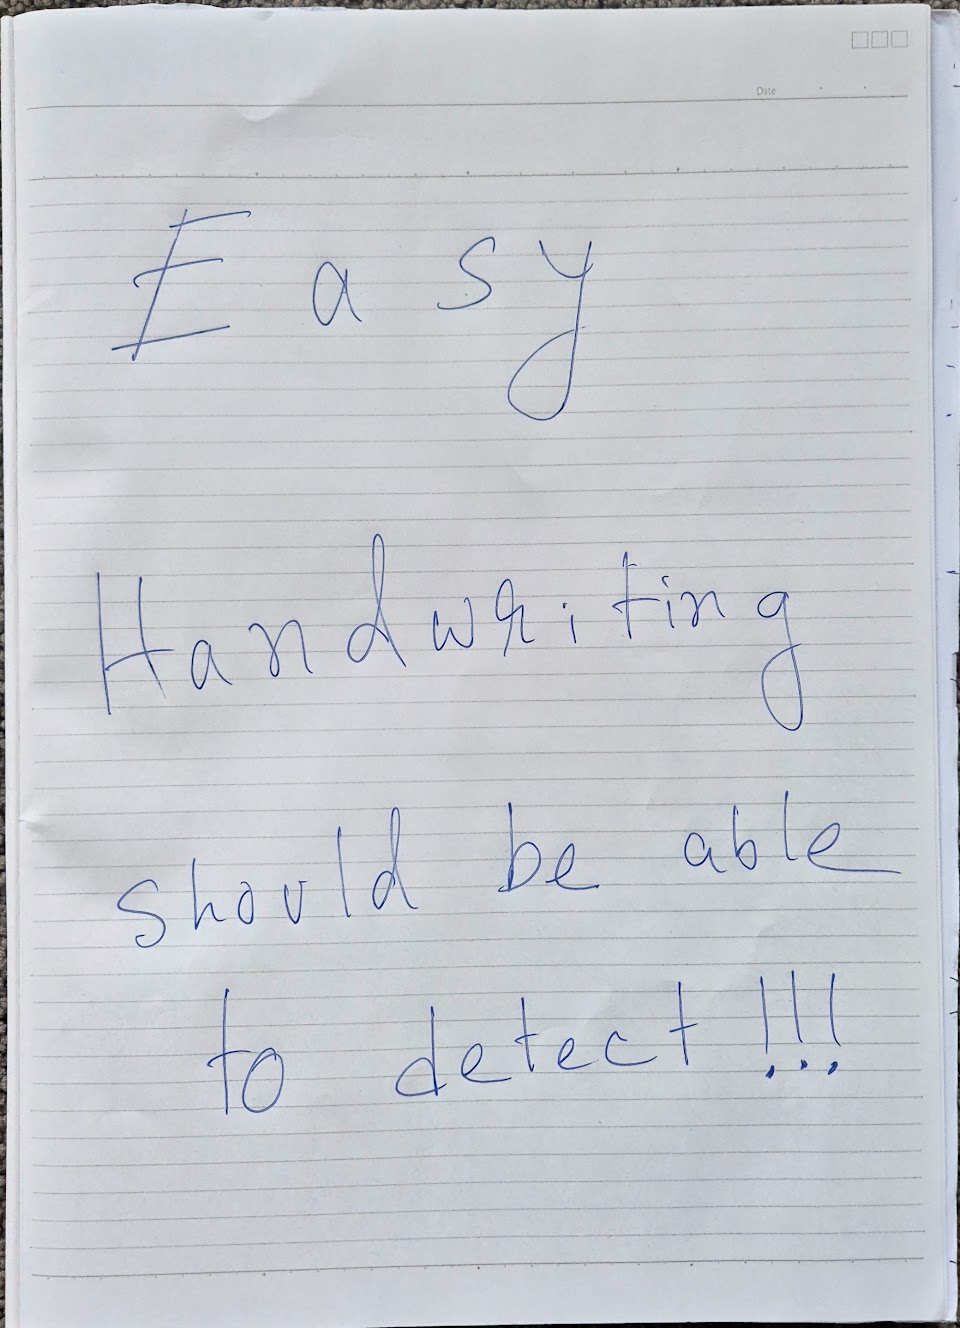 Date
Easy
Handwriting
should be able
to detect!!!